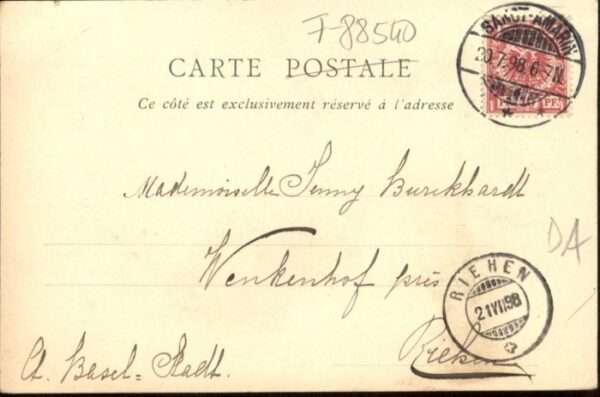 F-88540
SANCT-AMARIN
20.7.98.6-7N.
CARTE POSTALE
Ce côté est exclusivement réservé à l'adresse
Mademoiselle Jenny Burckhardt
DA
Wenkenhof près
RIEHEN
21.VII.98
Riehen
Ct. Basel-Stadt.